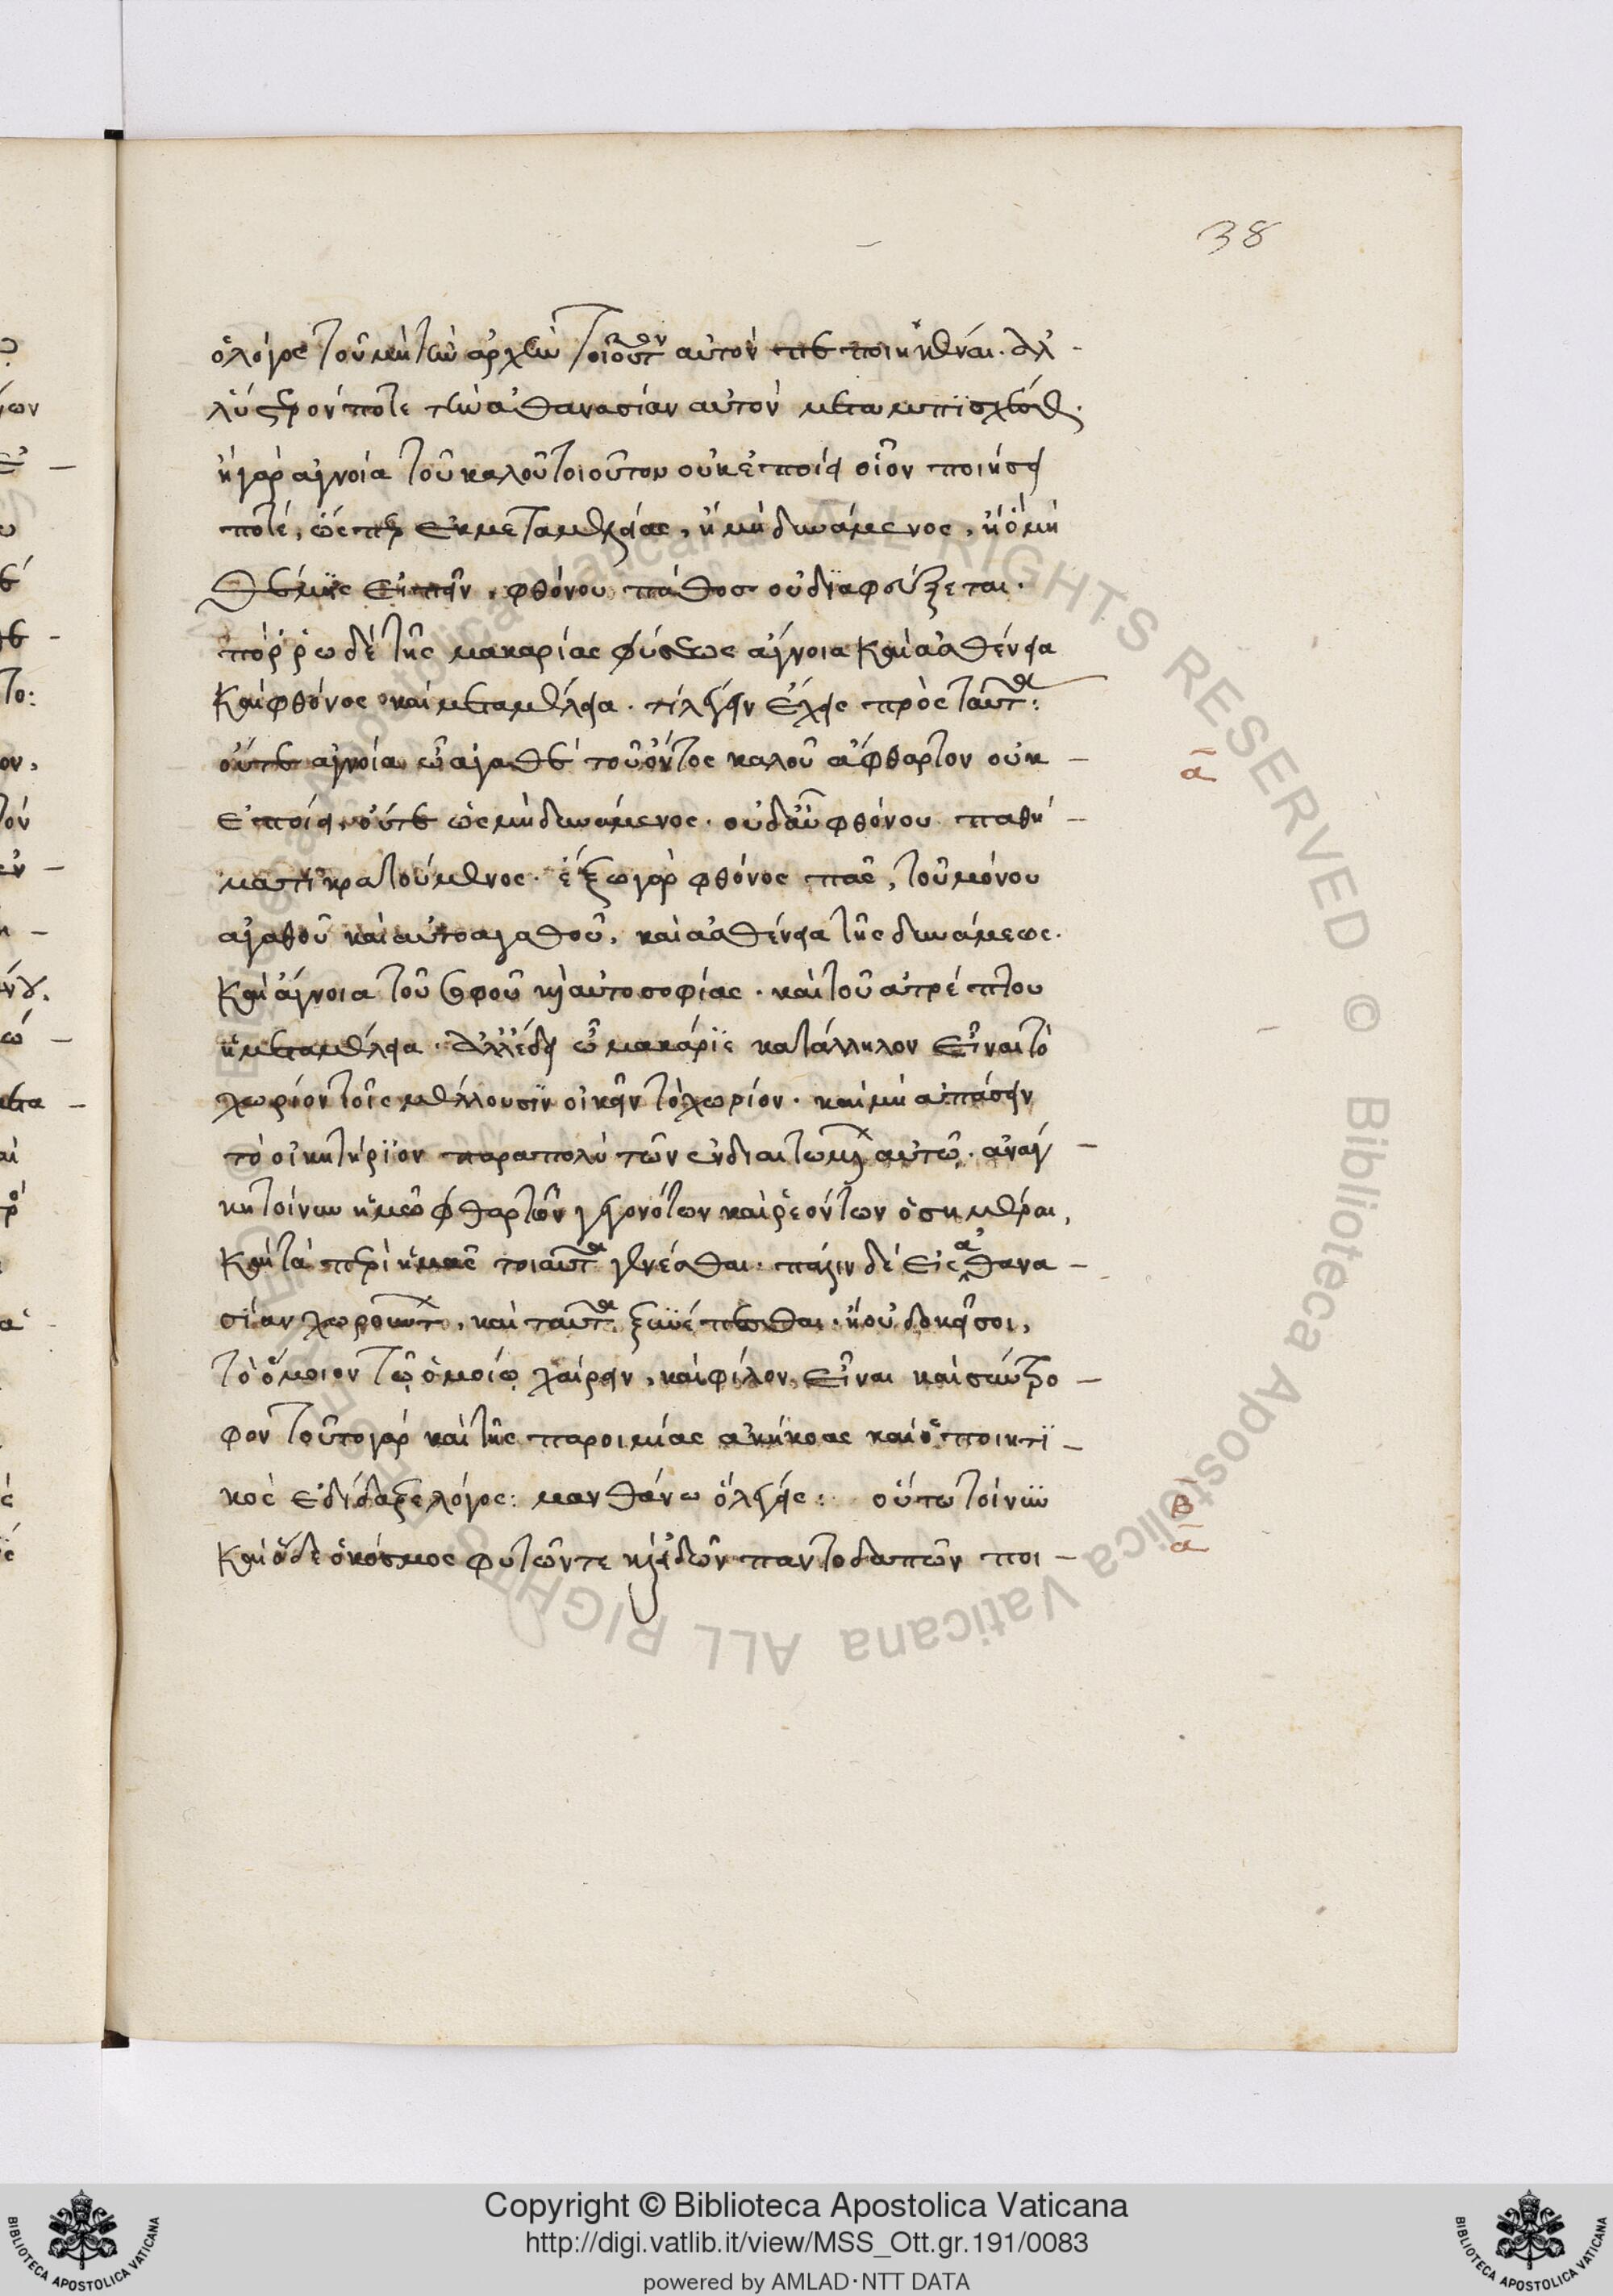 38
ὁ λόγος τοῦ μὴ τὴν ἀρχὴν τοιοῦτον αὐτὸν πεποιηκέναι. ἀλ
λ' ὕστερόν ποτε τὴν ἀθανασίαν αὐτὸν
ἢ γὰρ ἀγνοία τοῦ καλοῦ τοιοῦτον οὐκ ἐποίει οἷον ποιήσει
ποτέ, ὥσπερ ἐκ μεταμελείας, ἢ μὴ δυνάμενος, ἢ ὃ μὴ
θέμις εἰπεῖν, φθόνου πάθος οὐ διαφεύξεται.
πόρρω δὲ τῆς μακαρίας φύσεως ἄγνοια καὶ ἀσθένεια
καὶ φθόνος καὶ μεταμέλεια. τί λέγειν ἔχεις πρὸς ταῦτα:
οὔτε ἀγνοία ὦ ἀγαθὲ τοῦ ὄντος καλοῦ ἄφθαρτον οὐκ
ā
ἐποίει, οὔτε ὡς μὴ δυνάμενος. οὐδ' αὖ φθόνου παθή
ματι κρατούμενος. ἔξω γὰρ φθόνος πᾶς, τοῦ μόνου
ἀγαθοῦ καὶ αὐτοαγαθοῦ, καὶ ἀσθένεια τῆς δυνάμεως.
καὶ ἄγνοια τοῦ σοφοῦ καὶ αὐτοσοφίας. καὶ τοῦ ἀτρέπτου
ἡ μεταμέλεια. ἀλλ' ἔδει ὦ μακάριε κατάλληλον εἶναι τὸ
χωρίον τοῖς μέλλουσιν οἰκεῖν τὸ χωρίον. καὶ μὴ ἀπᾴδειν
τὸ οἰκητήριον παραπολὺ τῶν ἐνδιαιτωμένων αὐτῷ. ἀνάγ
κη τοίνυν ἡμῶν φθαρτῶν γεγονότων καὶ ῥεόντων ὁσημέραι,
καὶ τὰ περὶ ἡμᾶς τοιαῦτα γενέσθαι. πάλιν δὲ εἰς ἀθανα
σίαν χωρούντων, καὶ ταῦτα ξυνέπεσθαι. ἢ οὐ δοκεῖ σοι,
τὸ ὅμοιον τῷ ὁμοίῳ χαίρειν, καὶ φίλον εἶναι καὶ σύντρο
φον τοῦτο γὰρ καὶ τῆς παροιμίας ἀκήκοας καὶ ὁ ποιητι
κὸς ἐδίδαξε λόγος: μανθάνω ὃ λέγεις: οὕτω τοίνυν
β̄
ā
καὶ ὅδε ὁ κόσμος φυτῶν τε καὶ εἰδῶν παντοδαπῶν ποι
Copyright © Biblioteca Apostolica Vaticana
http://digi.vatlib.it/view/MSS_Ott.gr.191/0083
powered by AMLAD·NTT DATA
BIBLIOTECA APOSTOLICA VATICANA
BIBLIOTECA APOSTOLICA VATICANA
© Biblioteca Apostolica Vaticana ALL RIGHTS RESERVED © Biblioteca Apostolica Vaticana ALL RIGHTS RESERVED